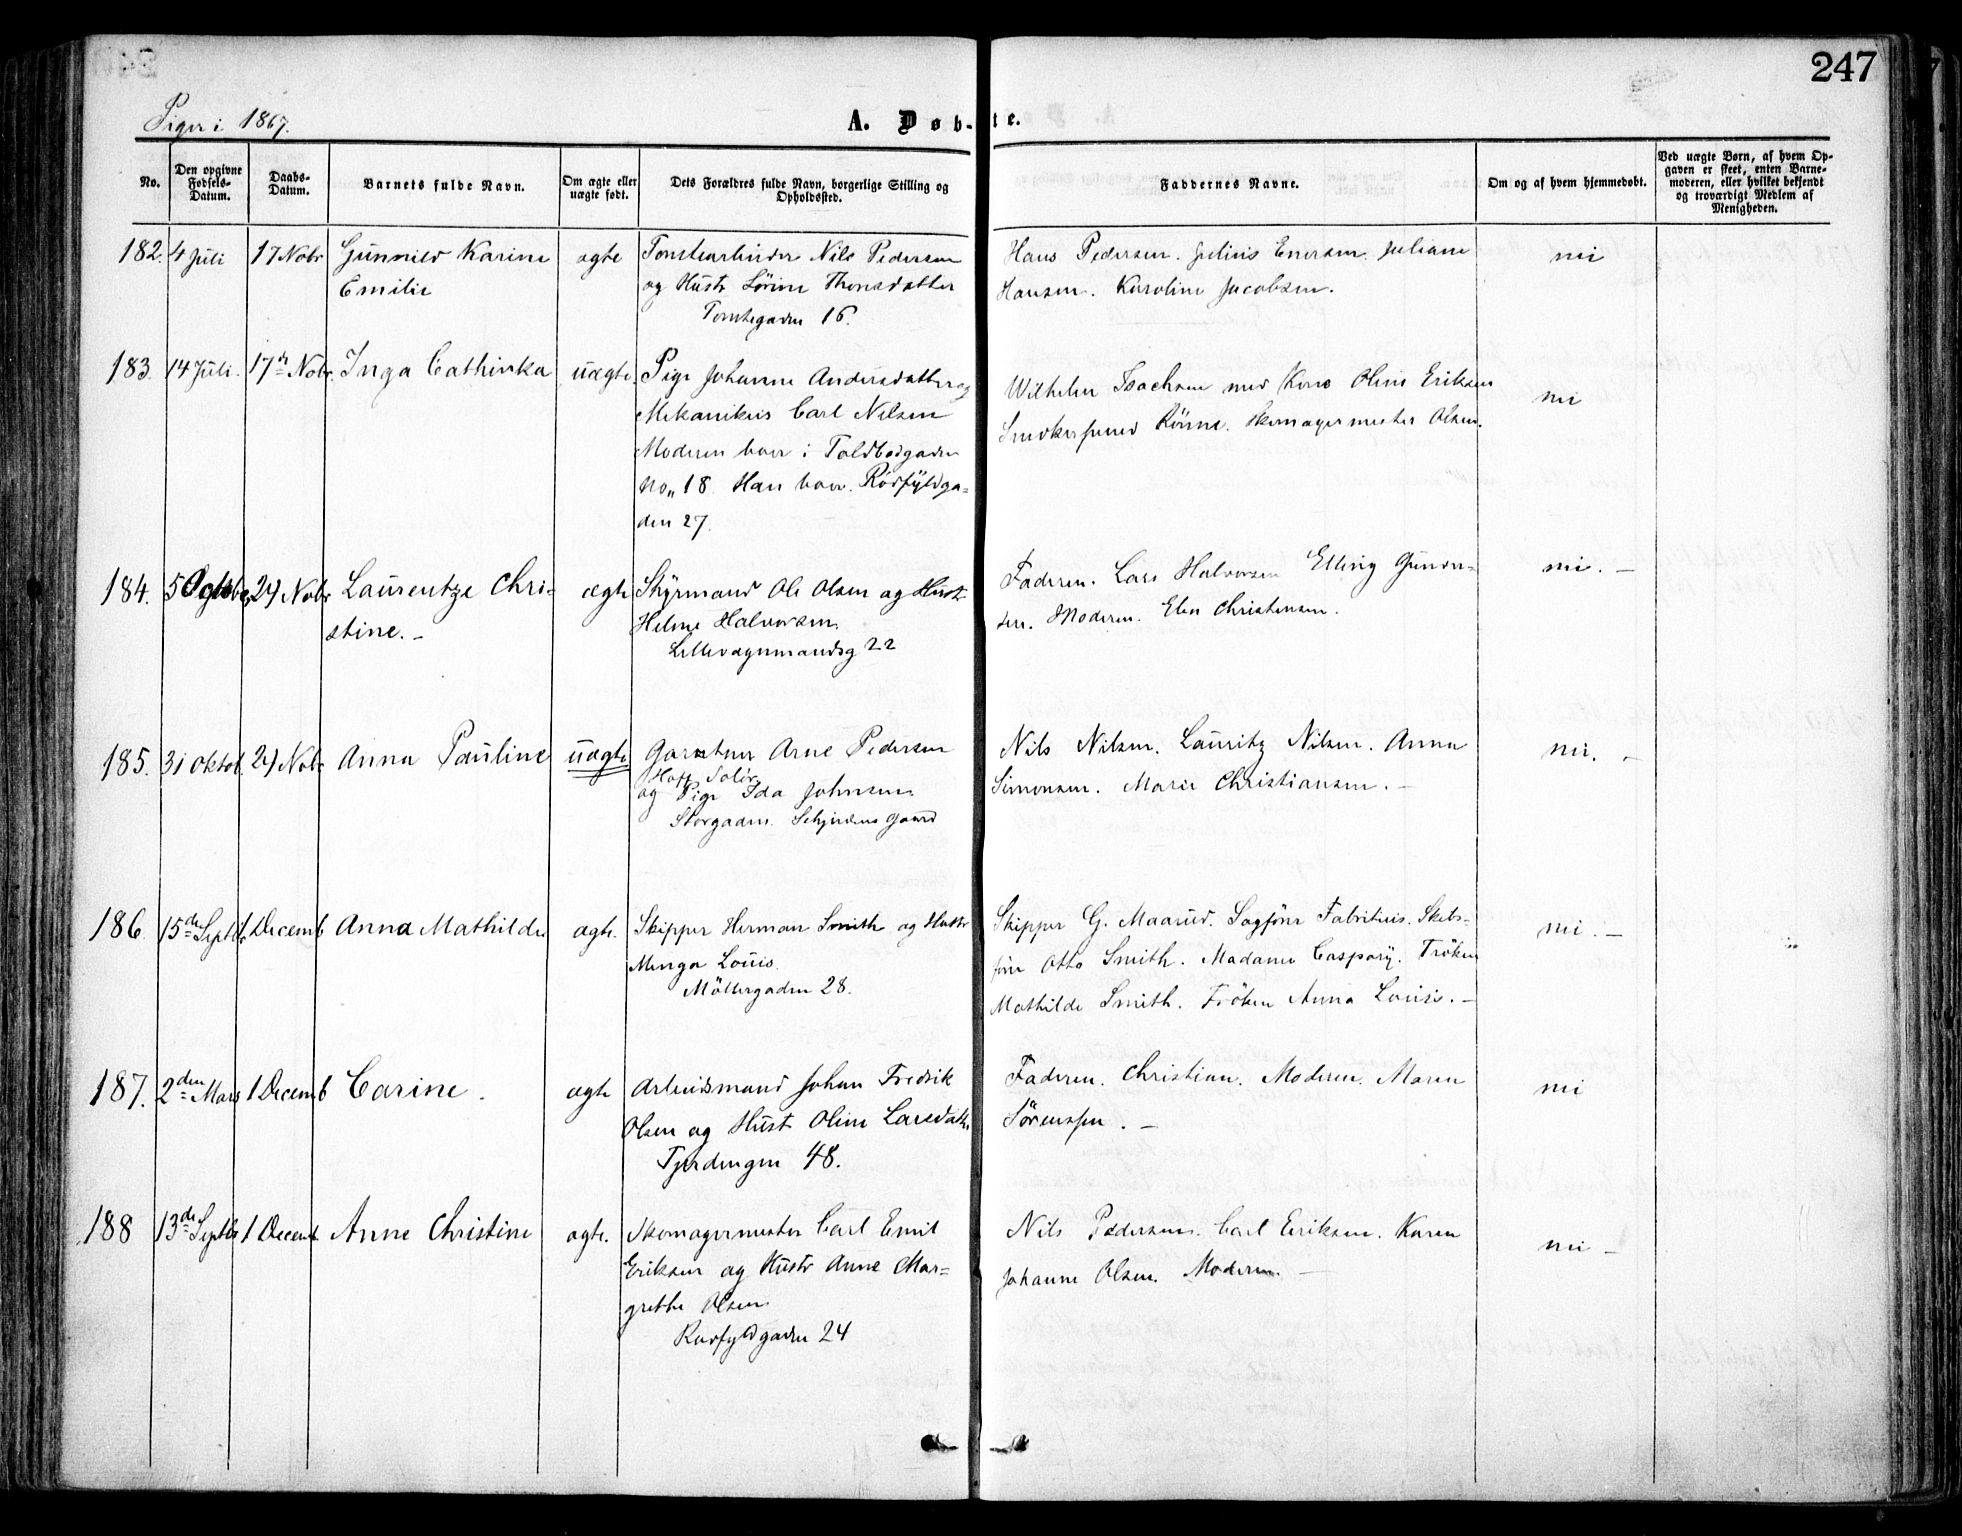 247
Piger i 1867.
A. Døb-te.
No.
Den opgivne Fødsels-Datum.
Daabs-Datum.
Barnets fulde Navn.
Om ægte eller uægte født.
Dets Forældres fulde Navn, borgerlige Stilling og Opholdssted.
Faddernes Navne.
Om og af hvem hjemmedøbt.
Ved uægte Børn, af hvem Op-
gaven er skeet, enten Barne-
moderen, eller hvilket bekjendt
og troværdigt Medlem af
Menigheden.
182. 4 Juli 17 Nobr Gunnild Karine ægte Nils Pedersen
Emilie og Hustr Sørine Thorsdatter
Tomtegaden 16.
Hans Pedersen. Julius Enersen. Juliane nei
Hansen. Karoline Jacobsen.
183. 14 Juli. 17de Nobr. Inga Cathinka uægte Pige Johanne Andersdatter og
Mekanikus Carl Nilsen
Moderen boer i Toldbodgaden
No. 18. Han boer. Rødfyldga-
den 27.
Wilhelm Isachsen med Kone Oline Eriksen nei
Smedkersvend Rönne. Skomagermester Olsen.
184. 5 Octobr 24 Nobr Laurentze Chri- ægte Styrmand Ole Olsen og Hust
stine. - Helene Halvorsen.
Lillevognmandsg 22
Faderen. Lars Halvorsen Elling Gunder- nei. -
sen. Moderen. Elen Christensen.
185. 31 Oktob. 24 Nobr Anna Pauline uægte Gartner Arne Pedersen
Hoff Solør
og Pige Ida Johnsen.
Storgaden. Gaard
Nils Nilsen. Lauritz Nilsen. Anna nei. -
Simonsen. Marie Christiansen. -
186. 15de Septbr 1 Decemb Anna Mathilde ægte. Skipper Herman Smith og Hustr
Minga Louis.
Möllergaden 28.
Skipper G. Maarud. Sagförer Fabritius. Skibs- nei. -
förer Otto Smith. Madame Caspary. Fröken
Mathilde Smith. Fröken Anna Louis. -
187. 2den Mars 1 Decemb Carine. ægte Arbeidsmand Johan Fredrik
Olsen og Hust Oline Larsdatr
Fjerdingen 48.
Faderen. Christian. Moderen. Maren nei
Sørenssen. -
188 13de Septbr 1 Decemb. Anne Christine ægte. Skomagermester Carl Emil
Eriksen og Hustr Anne Mar-
grethe Olsen
Rødfyldgaden 24
Nils Pedersen. Carl Eriksen. Karen nei -
Johanne Olsen. Moderen. -